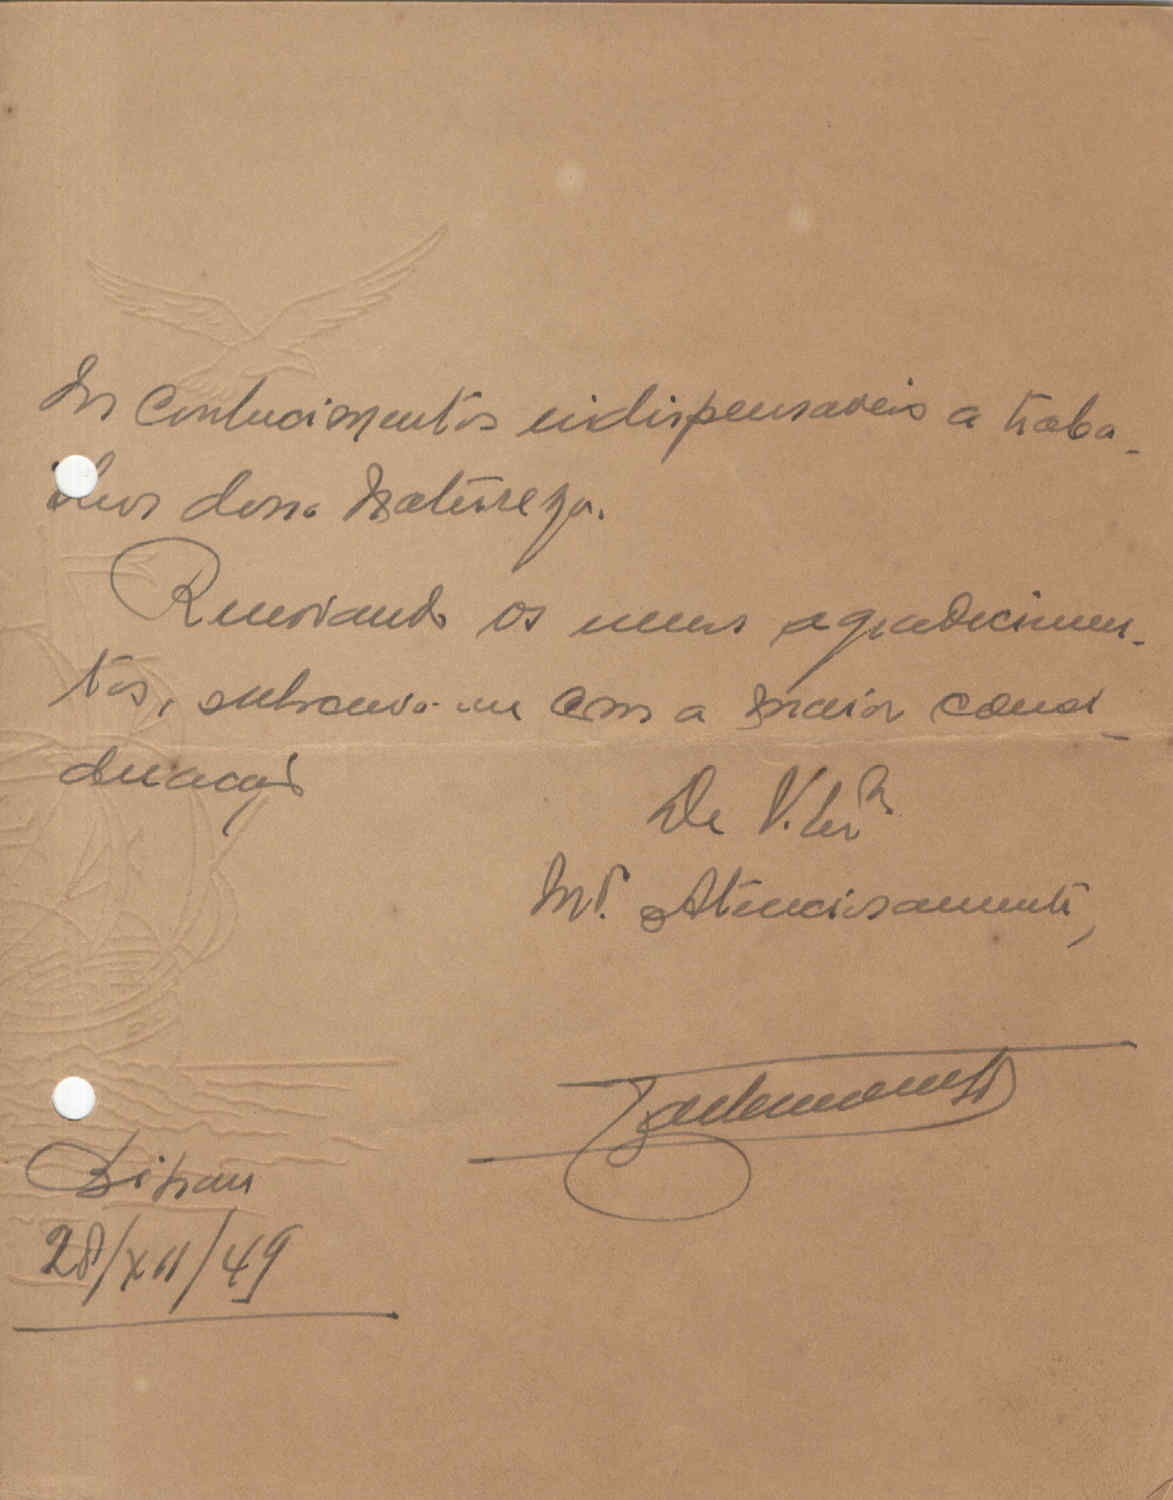 os conhecimentos indispensaveis a traba-
lhos dessa Natureza.
Renovando os meus agradecimen-
tos, subscrevo-me com a maior consi-
deração
De V.
Mt. Atenciosamente,
28/XII/49